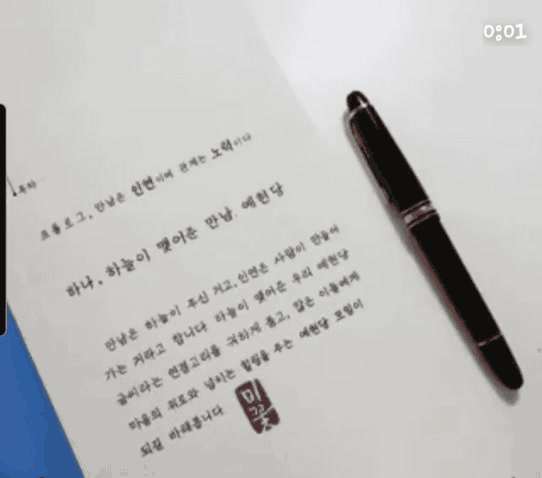 0:01
목차
프롤로그, 만남은 인연이며 관계는 노력이다
하나, 하늘이 맺어준 만남, 예헌당
만남은 하늘이 주신 거고, 인연은 사람이 만들어
가는 거라고 합니다. 하늘이 맺어준 우리 예헌당
글씨라는 연결고리를 귀하게 품고, 많은 이들에게
마음의 위로와 넘치는 힐링을 주는 예헌당 모임이
되길 바래봅니다
미꽃